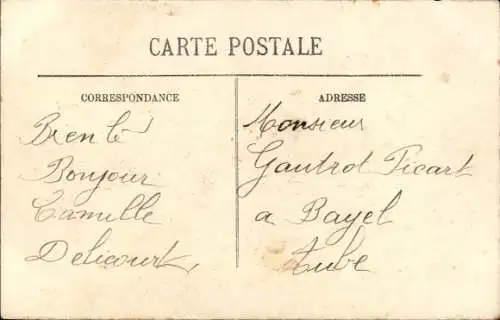 CARTE POSTALE
CORRESPONDANCE
Bien le
Bonjour
Camille
Delicourt
ADRESSE
Monsieur
Gautrot Picart
a Bayel
Aube